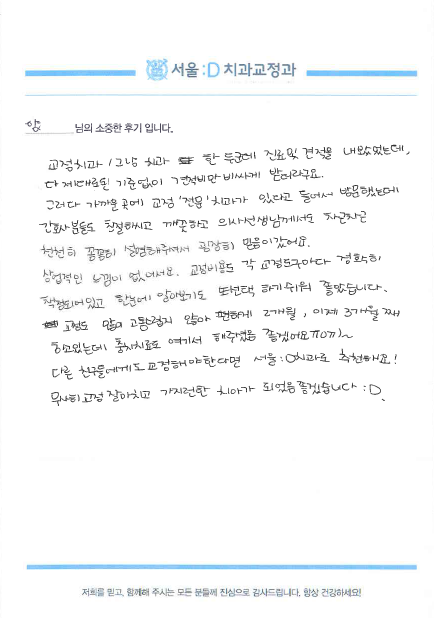 서울 :D 치과교정과
양 님의 소중한 후기 입니다.
교정치과 / 그냥 치과 한 두군데 진료및 견적을 내보았었는데,
다 제대로된 기준없이 견적비만 비싸게 받더라구요.
그러다 가까운곳에 교정 '전용' 치과가 있다고 들어서 방문했는데
간호사분들도 친절하시고 깨끗하고 의사선생님께서도 차근차근
천천히 꼼꼼히 설명해주셔서 굉장히 믿음이갔어요.
상업적인 느낌이 없어서요. 교정비용도 각 교정도구마다 정확히
책정되어있고 한눈에 알아보기도 또 선택 하기 쉬워 좋았습니다.
교정도 많이 고통스럽지 않아 편하게 2개월, 이제 3개월 째
하고있는데 충치치료도 여기서 해주셨음 좋겠어요ㅠㅇㅠ)~
다른 친구들에게도 교정해야한다면 서울:D치과로 추천해요!
무사히 교정 잘마치고 가지런한 치아가 되었음좋겠습니다 :D
저희를 믿고, 함께해 주시는 모든 분들께 진심으로 감사드립니다. 항상 건강하세요!